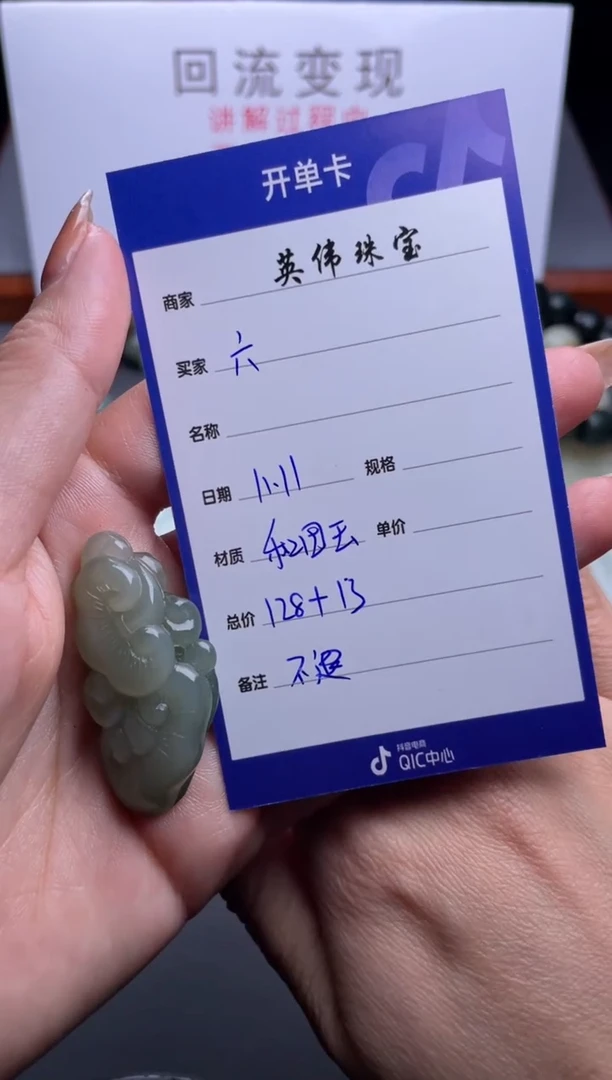 回流变现
讲解过程中
开单卡
商家 英伟珠宝
买家 六
名称
日期 11.11 规格
材质 和田玉 单价
总价 128+13
备注 不退
抖音电商
QIC中心